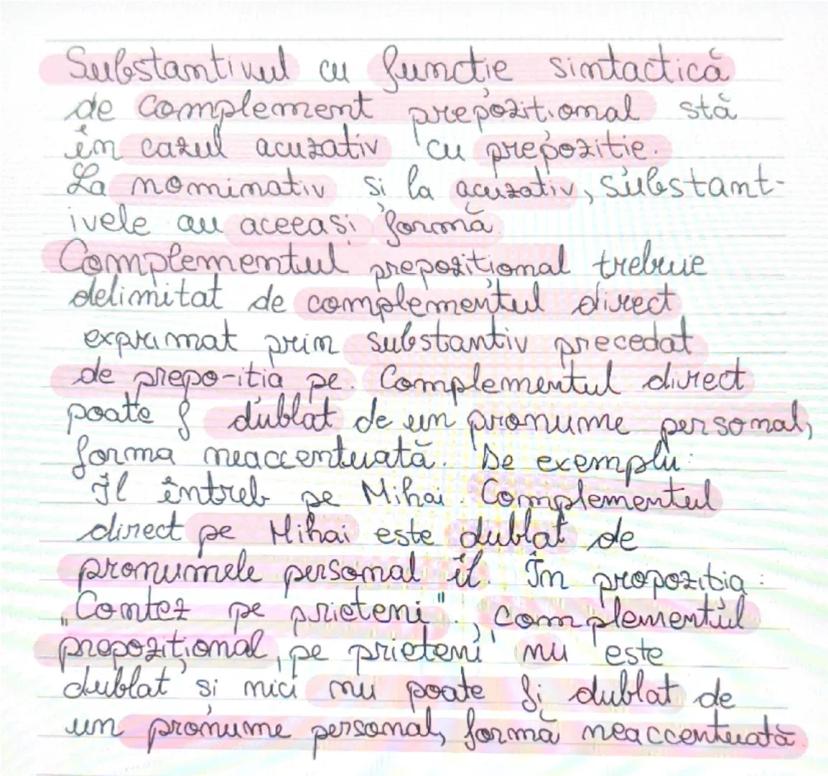 Substantivul cu funcție sintactică
de complement prepozițional stă
în cazul acuzativ cu prepoziție.
La nominativ și la acuzativ, substant-
ivele au aceeași formă.
Complementul prepozițional trebuie
delimitat de complementul direct
exprimat prin substantiv precedat
de prepo-iția pe. Complementul direct
poate f dublat de un pronume personal,
forma neaccentuată. De exemplu:
Îl întreb pe Mihai. Complementul
direct pe Mihai este dublat de
pronumele personal îl. În propoziția:
"Contez pe prieteni", complementul
prepozițional, pe prieteni nu este
dublat și nici nu poate fi dublat de
un pronume personal, formă neaccentuată.